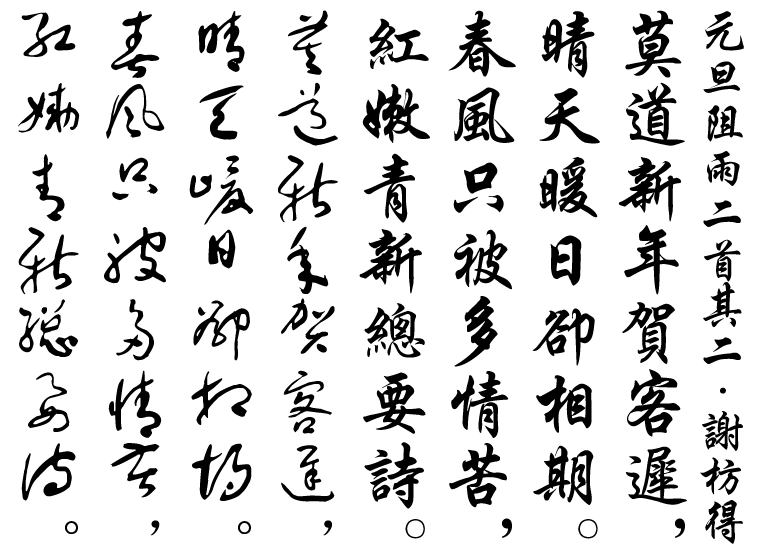 元旦阻雨二首其二·謝枋得
莫道新年賀客遲，
晴天暖日卻相期。
春風只被多情苦，
紅嫩青新總要詩。
莫道新年賀客遲，
晴天暖日卻相期。
春風只被多情苦，
紅嫩青新總要詩。